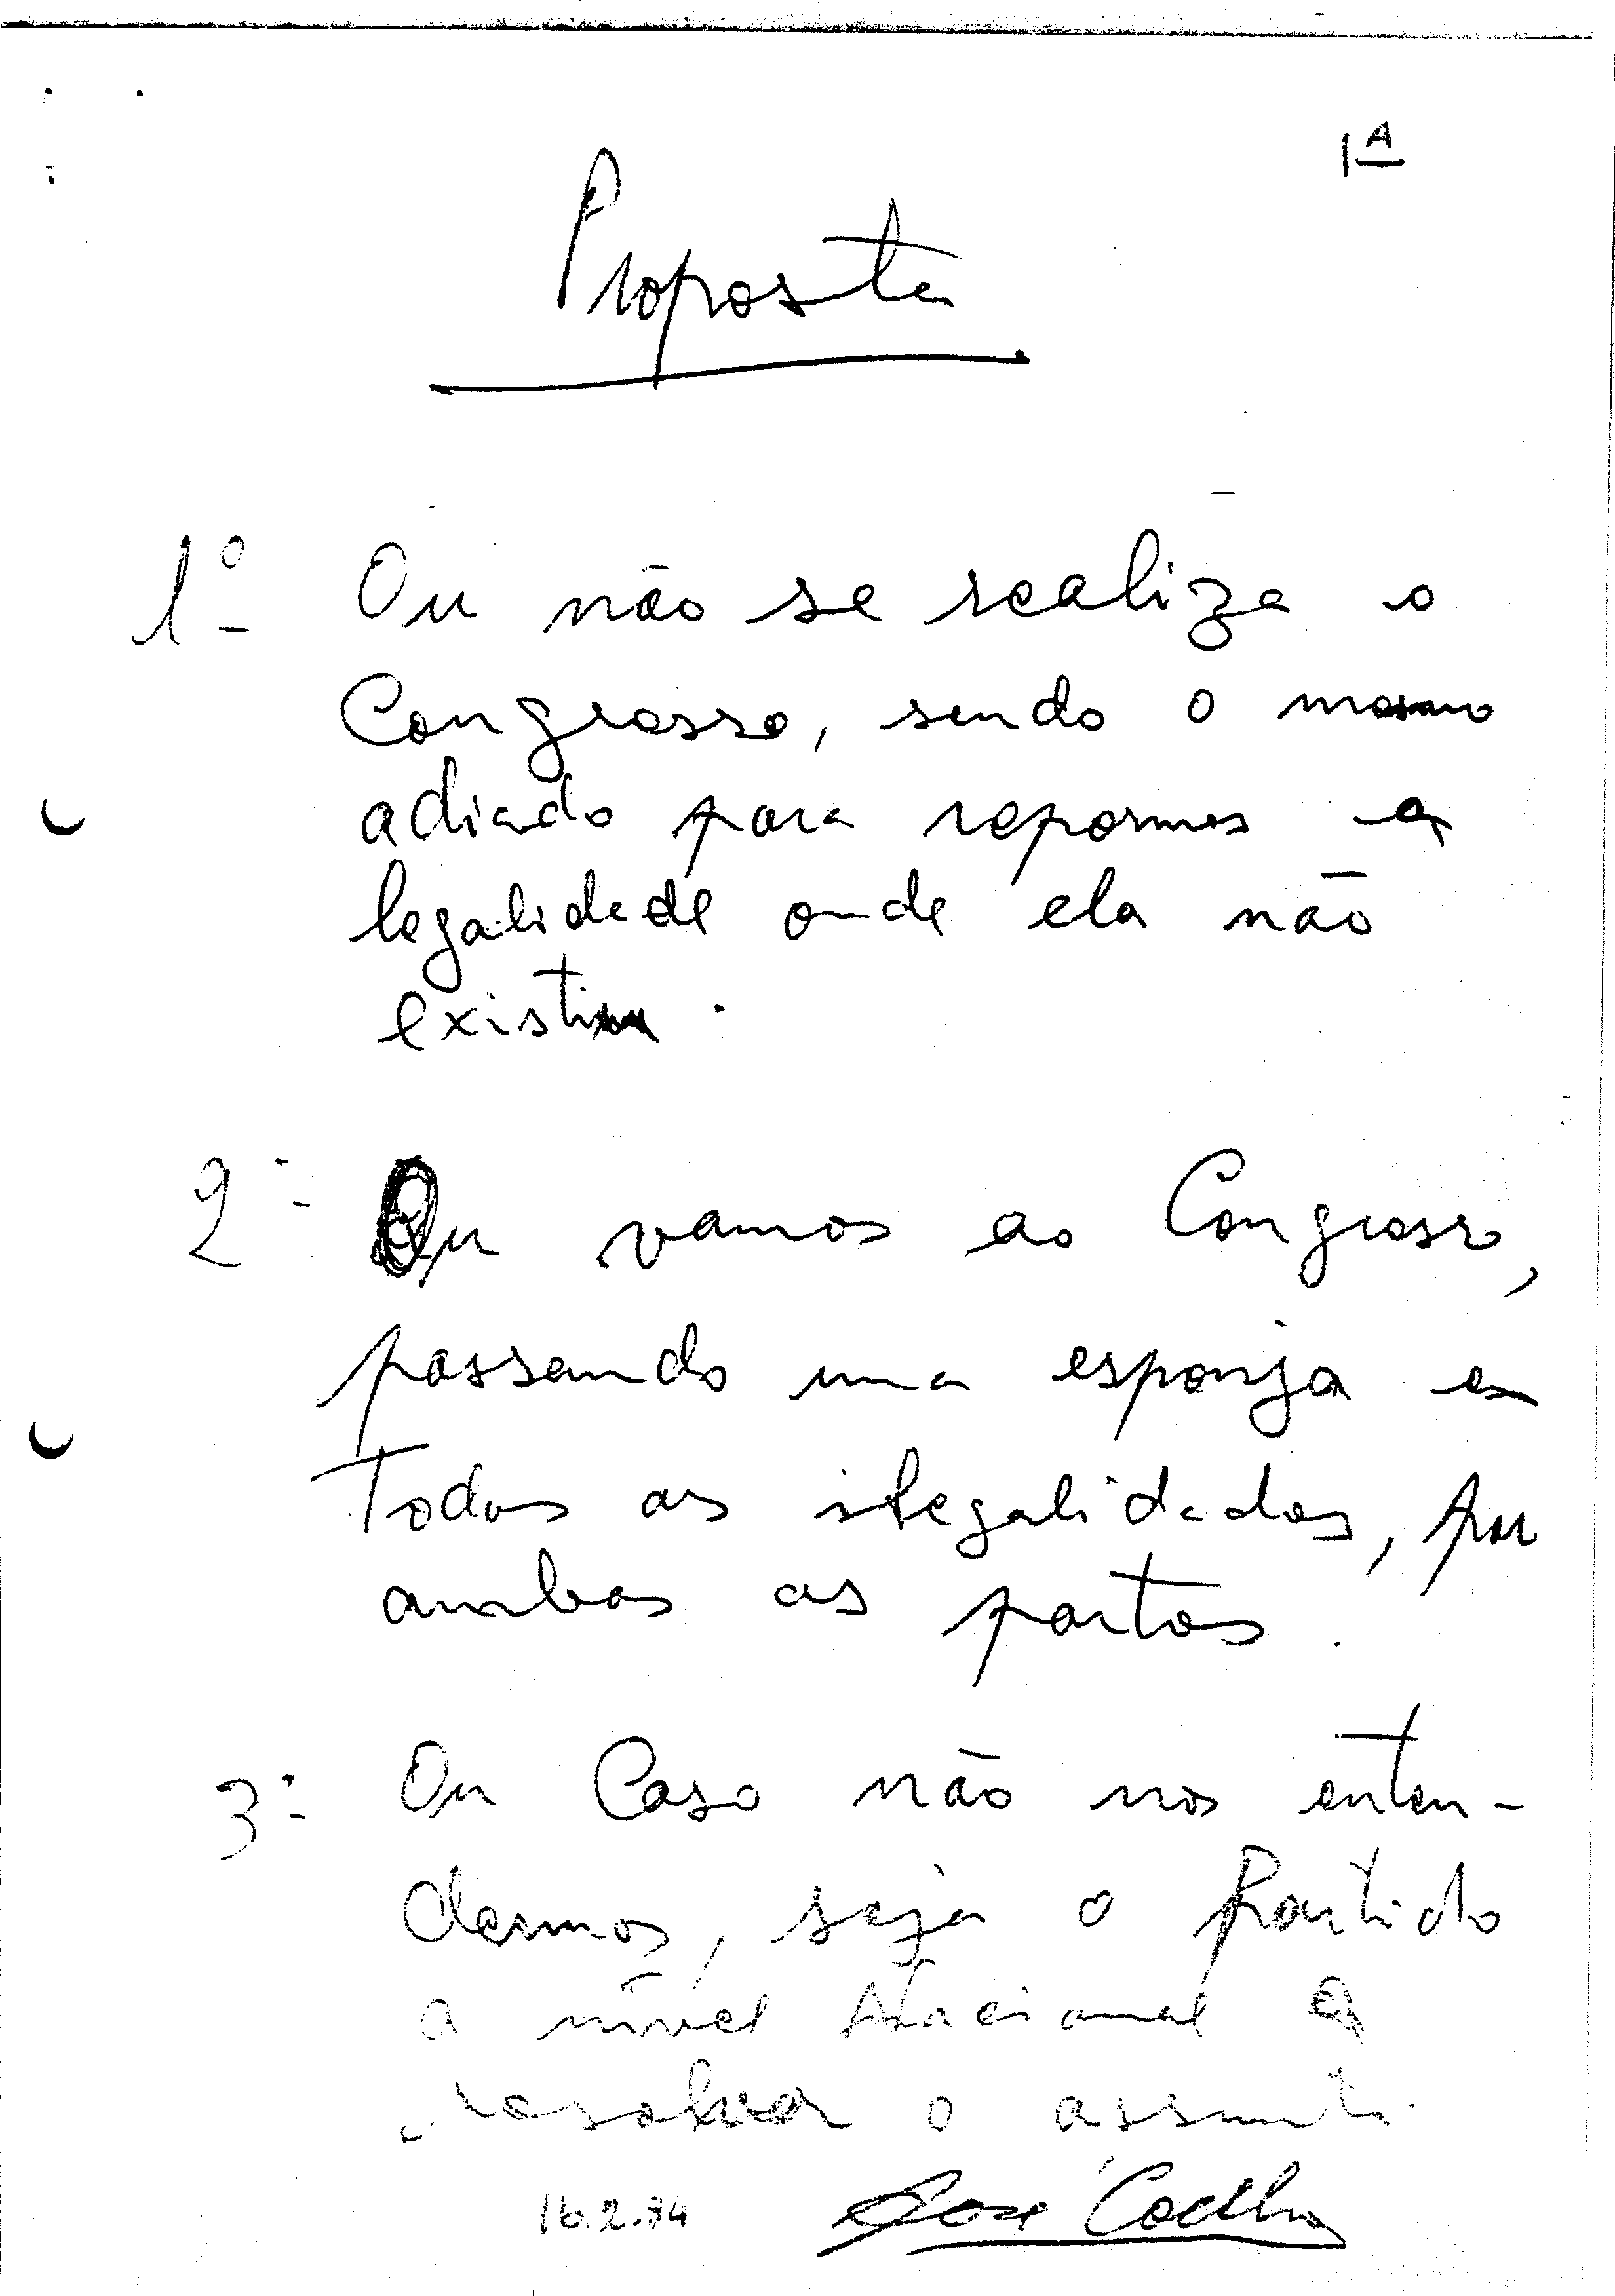 1A
Proposta
1º- Ou não se realiza o
Congresso, sendo o mesmo
adiado para repormos a
legalidade onde ela não
existiu.
2º- Ou vamos ao Congresso,
passando uma esponja a
Todas as ilegalidades, por
ambas as partes.
3º- Ou Caso não nos enten-
dermos, seja o Partido
a nível Nacional a
resolver o assunto.
16.2.74 José Coelho